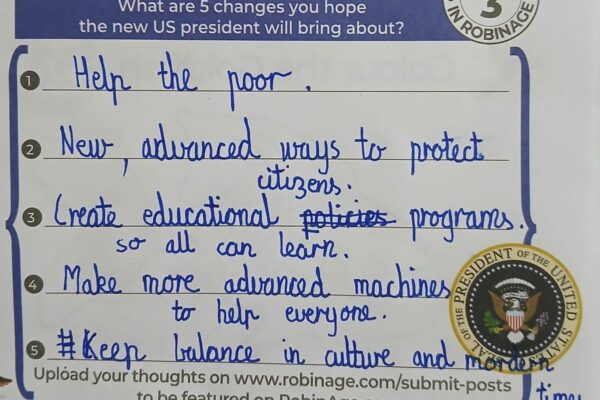 What are 5 changes you hope
the new US president will bring about?
3
IN ROBINAGE
1 Help the poor.
2 New, advanced ways to protect
citizens.
3 Create educational policies programs.
so all can learn.
4 Make more advanced machines
to help everyone.
5 #Keep balance in culture and mordern
times
SEAL OF THE PRESIDENT OF THE UNITED STATES
Upload your thoughts on www.robinage.com/submit-posts
to be featured on RobinAge